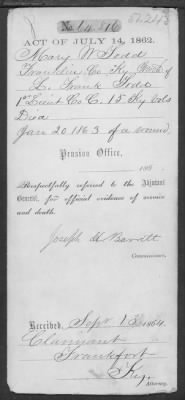 No. 64.816
ACT OF JULY 14, 1862.
Mary W Todd
Franklin Co Ky of
L. Frank Todd
1st Lieut Co C. 15 Ky Vols
Died
Jan 20 1863 of a wound
Pension Office,
186
Respectfully referred to the Adjutant
General, for official evidence of service
and death.
Joseph H Barrett
Commissioner.
Received, Sept 13 1864.
Claimant
Frankfort
Ky.
Attorney.